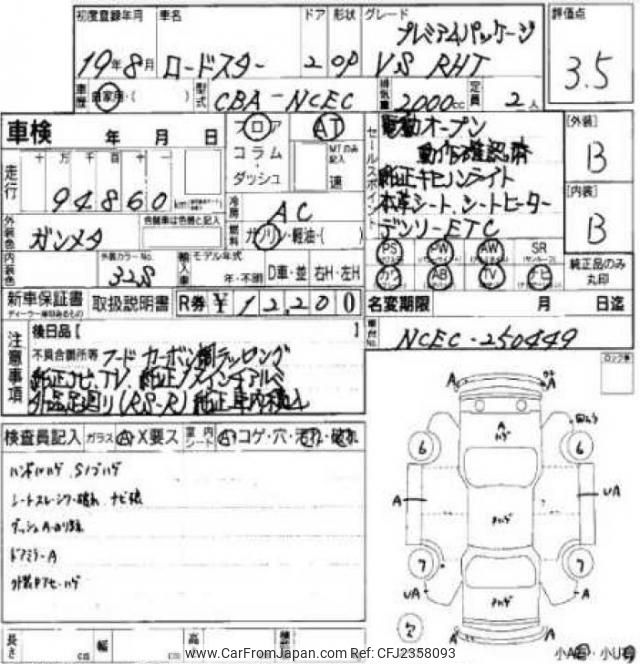 初度登録年月 車名 ドア 形状 グレード 評価点
プレミアムパッケージ
19年8月 ロードスター 2 OP VS RHT 3.5
車歴 自家用・( ) 型式 CBA-NCEC 排気量 2000cc 定員 2人
車検 年 月 日 フロア AT セールスポイント 電動オープン [外装]
コラム MTのみ記入 動作確認済 B
走行 十万千百十一 ダッシュ 速 純正キセノンライト
94860 km 本革シート、シートヒーター [内装]
外装色 ガンメタ 色替車は色番と記入 冷房 AC デンソーETC B
燃料 ガソリン・軽油・( )
内装色 外装カラーNo. 328 輸入車 モデル年式 年・不明 D車・並 右H・左H
PS PW AW SR 純正品のみ丸印
カワ AB TV ナビ
新車保証書 取扱説明書 R券 ¥12,200 名変期限 月 日迄
ディーラー車印あるもの
注意事項 後日品[ ] 車台No. NCEC-250449
不具合箇所等 フードカーボン調ラッピング
純正ナビ、TV、純正17インチアルミ
外品足廻り(RS-R)純正車内積込
ロック車
検査員記入 ガラス A X要ス 室内シート A コゲ・穴・汚れ・破れ
バンパーハゲ、Sノブハゲ
シートスレ・シワ・破れ ナビ
ダッシュA
ドアミラーA
外装 ハゲ
A A
A ハゲ
6 6
A UA
Aハゲ
7 7
UA A
Aハゲ
欠
A A
長さ cm 幅 cm 高
小A・小U
www.CarFromJapan.com Ref: CFJ2358093